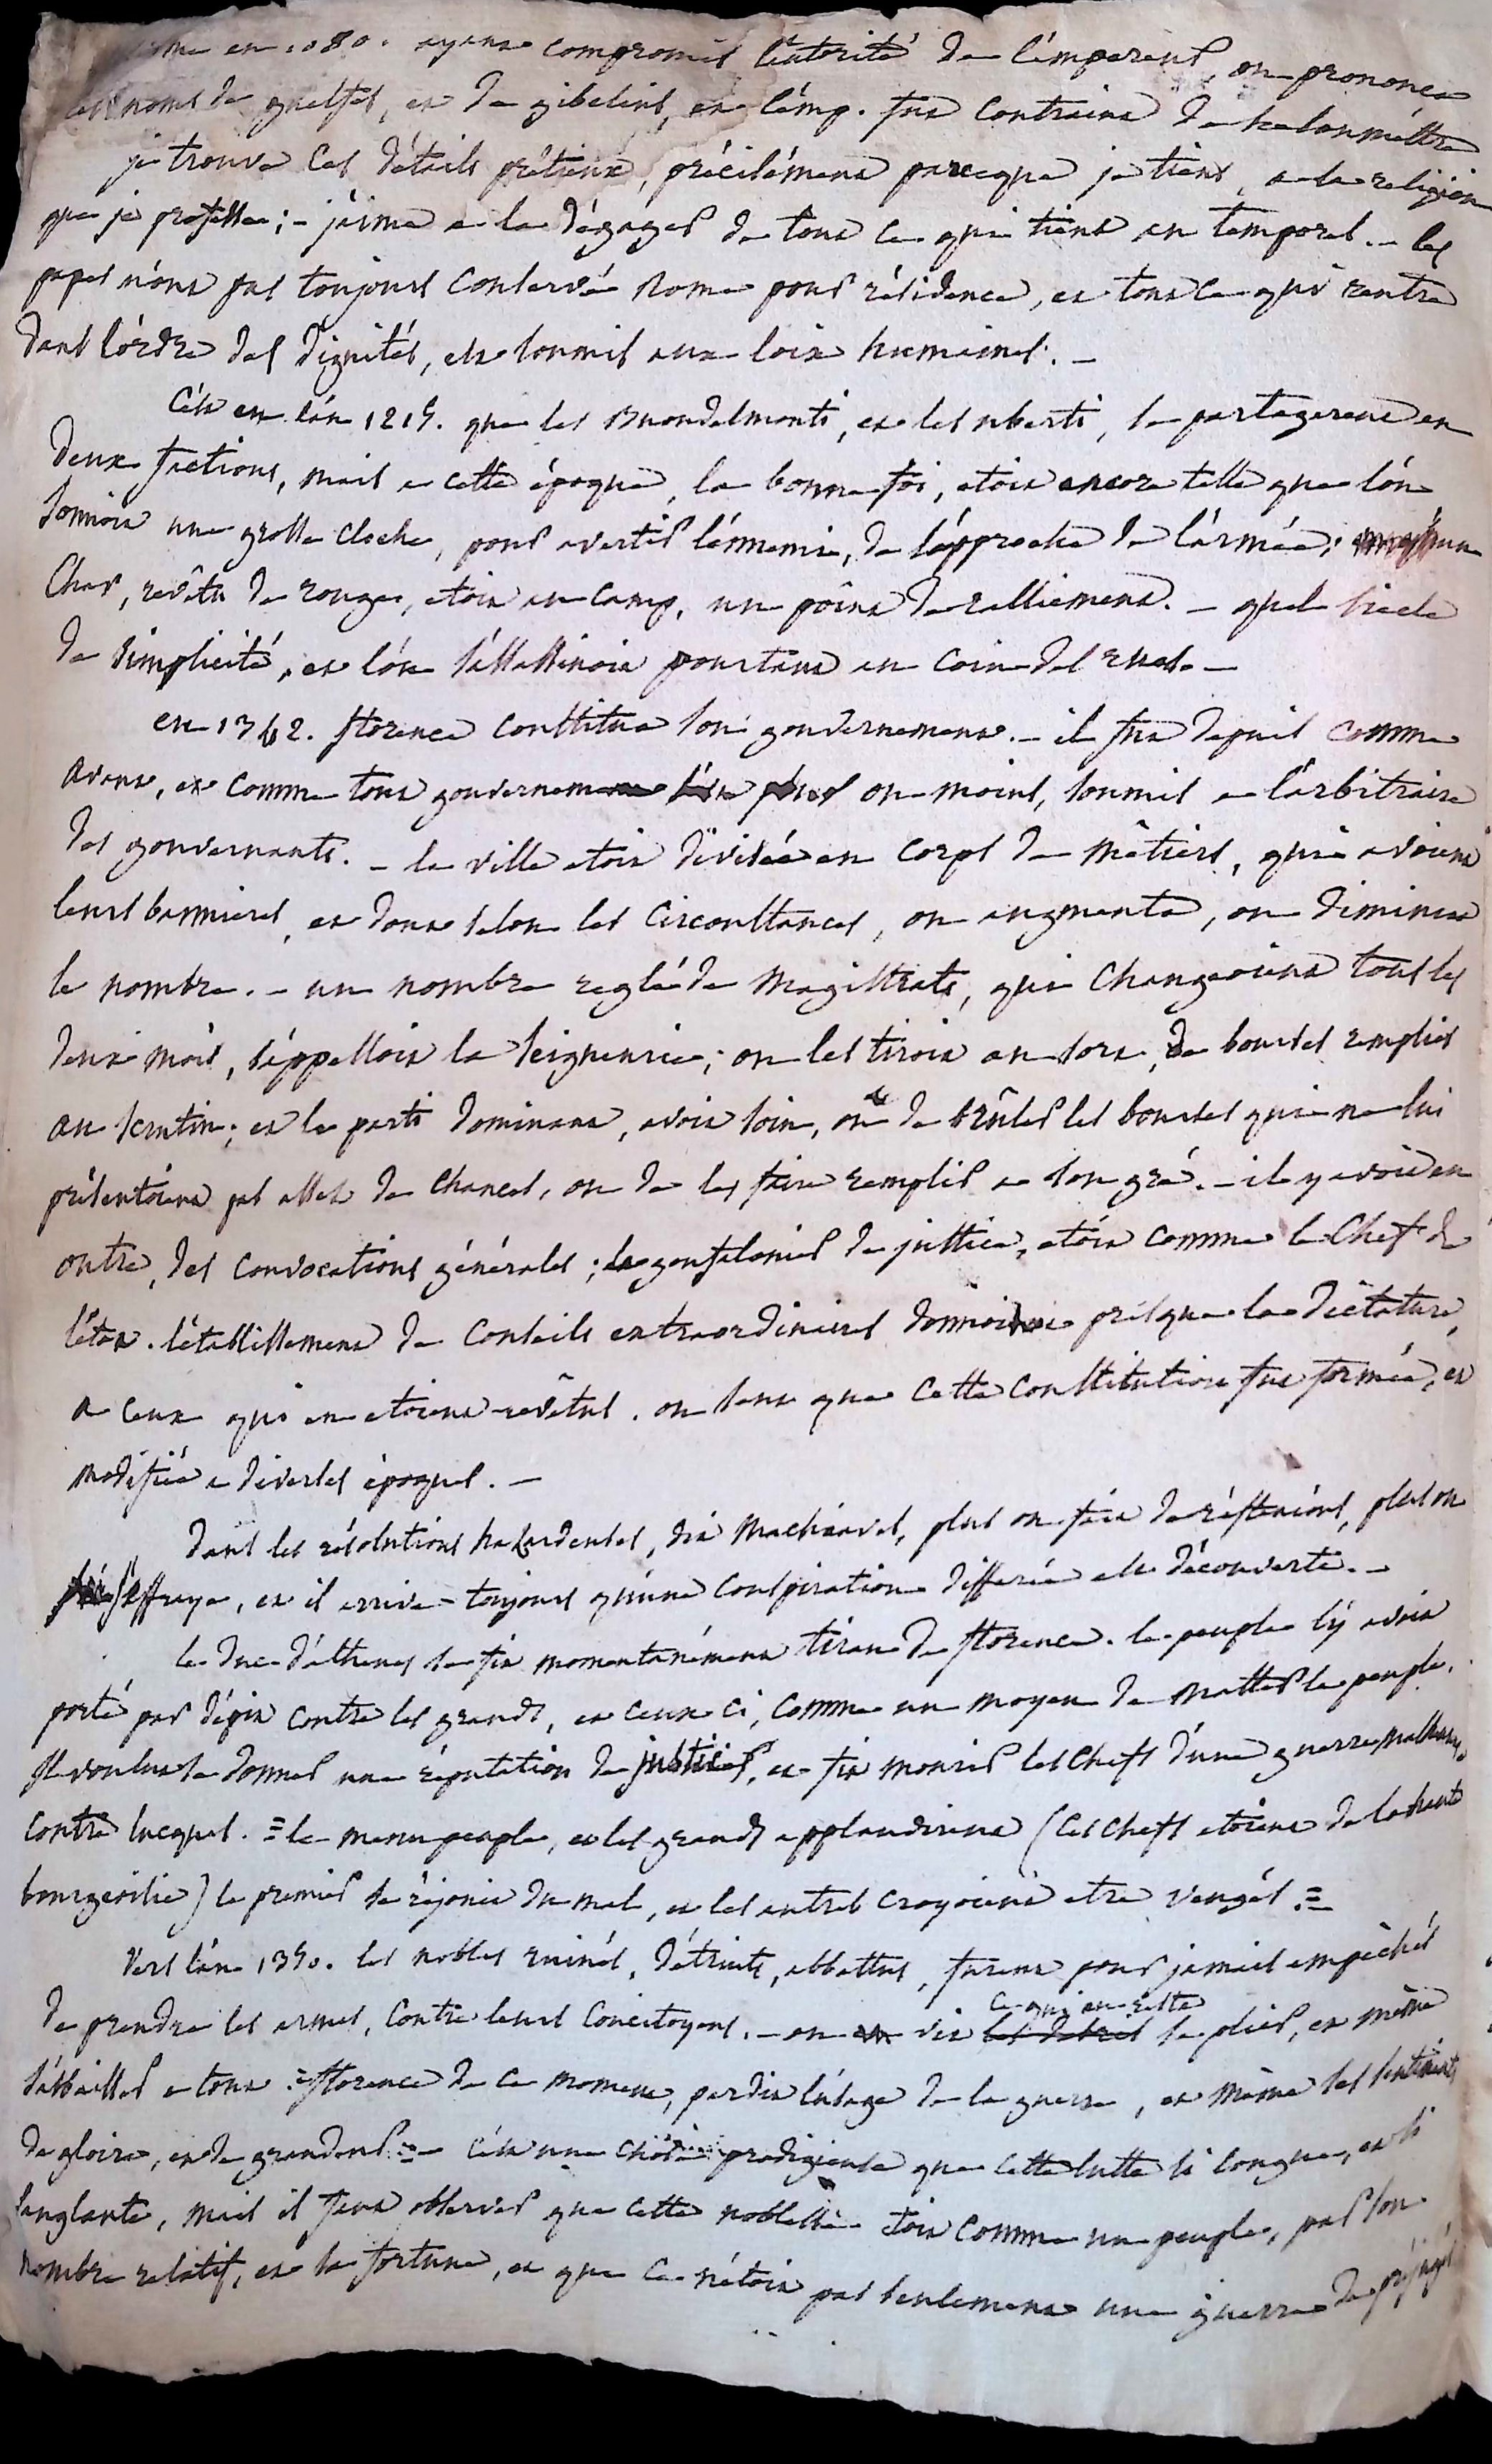 en 1080. ayant compromis l'autorité de l'empereur, on prononça
les noms de guelfes, et de gibelins, et l'emp. fut contraint de se soumettre
je trouve ces détails prétieux, précisément parceque je tiens, a la religion
que je professe; - j'aime a la dégager de tout ce qui tient au temporel. - les
papes n'ont pas toujours conservé Rome pour résidence, et tout ce qui rentre
dans l'ordre des dignités, est soumis aux loix humaines. -
C'est en l'an 1215. que les Buondelmonti, et les uberti, se partagerent en
deux factions, mais a cette époque, la bonne foi, etoit encore telle que l'on
sonnoit une grosse cloche, pour avertir l'ennemi, de l'approche de l'armée; un
Char, revêtu de rouge, etoit au camp, un point de ralliement. - quel siecle
de simplicité, et l'on s'assassinoit pourtant au coin des rues. -
en 1342. florence constitua son gouvernement. - il fut depuis comme
avant, et comme tout gouvernement l'est plus ou moins, soumis a l'arbitraire
des gouvernants. - la ville etoit divisée en corps de mêtiers, qui avoient
leurs bannieres, et dont selon les circonstances, on augmenta, on diminua
le nombre. - un nombre reglé de magistrats, qui changeoient tous les
deux mois, s'appelloit la seigneurie; on les tiroit au sort, de bourses remplies
au scrutin; et le parti dominant, avoit soin, ou de brûler les bourses qui ne lui
présentoient pas assez de chances, ou de les faire remplir a son gré. - il y avoit en
outre, des convocations générales; le gonfalonier de justice, etoit comme le Chef de
l'etat. l'etablissement de conseils extraordinaires donnoit presque la dictature,
a ceux qui en etoient revêtus. on sent que cette constitution fut formée, et
modifiée a diverses époques. -
dans les résolutions hazardeuses, dit Machiavel, plus on fait de réflexions, plus on
s'effraye, et il arrive toujours qu'une conspiration differée est découverte. -
le duc d'athenes se fit momentanément tiran de florence. le peuple l'y avoit
porté par dépit contre les grands, et ceux ci, comme un moyen de matter le peuple.
Il voulut se donner une réputation de justicier, et fit mourir les chefs d'une guerre malheureuse
contre lucques. = le menu peuple, et les grands applaudirent (ces chefs etoient de la haute
bourgeoisie) le premier se réjouit du mal, et les autres croyoient etre vengés. =
Vers l'an 1350. les nobles ruinés, détruits, abbattus, furent pour jamais empêchés
de prendre les armes, contre leurs concitoyens. - on vit ce qui en reste les débris se plier, et même
s'abbaisser a tout. = florence de ce moment, perdit l'usage de la guerre, et même ses sentiments
de gloire, et de grandeur. = - c'est une chose prodigieuse que cette lutte si longue, et si
sanglante, mais il faut observer que cette noblesse etoit comme un peuple, par son
nombre relatif, et sa fortune, et que ce n'étoit pas seulement une guerre de préjugés